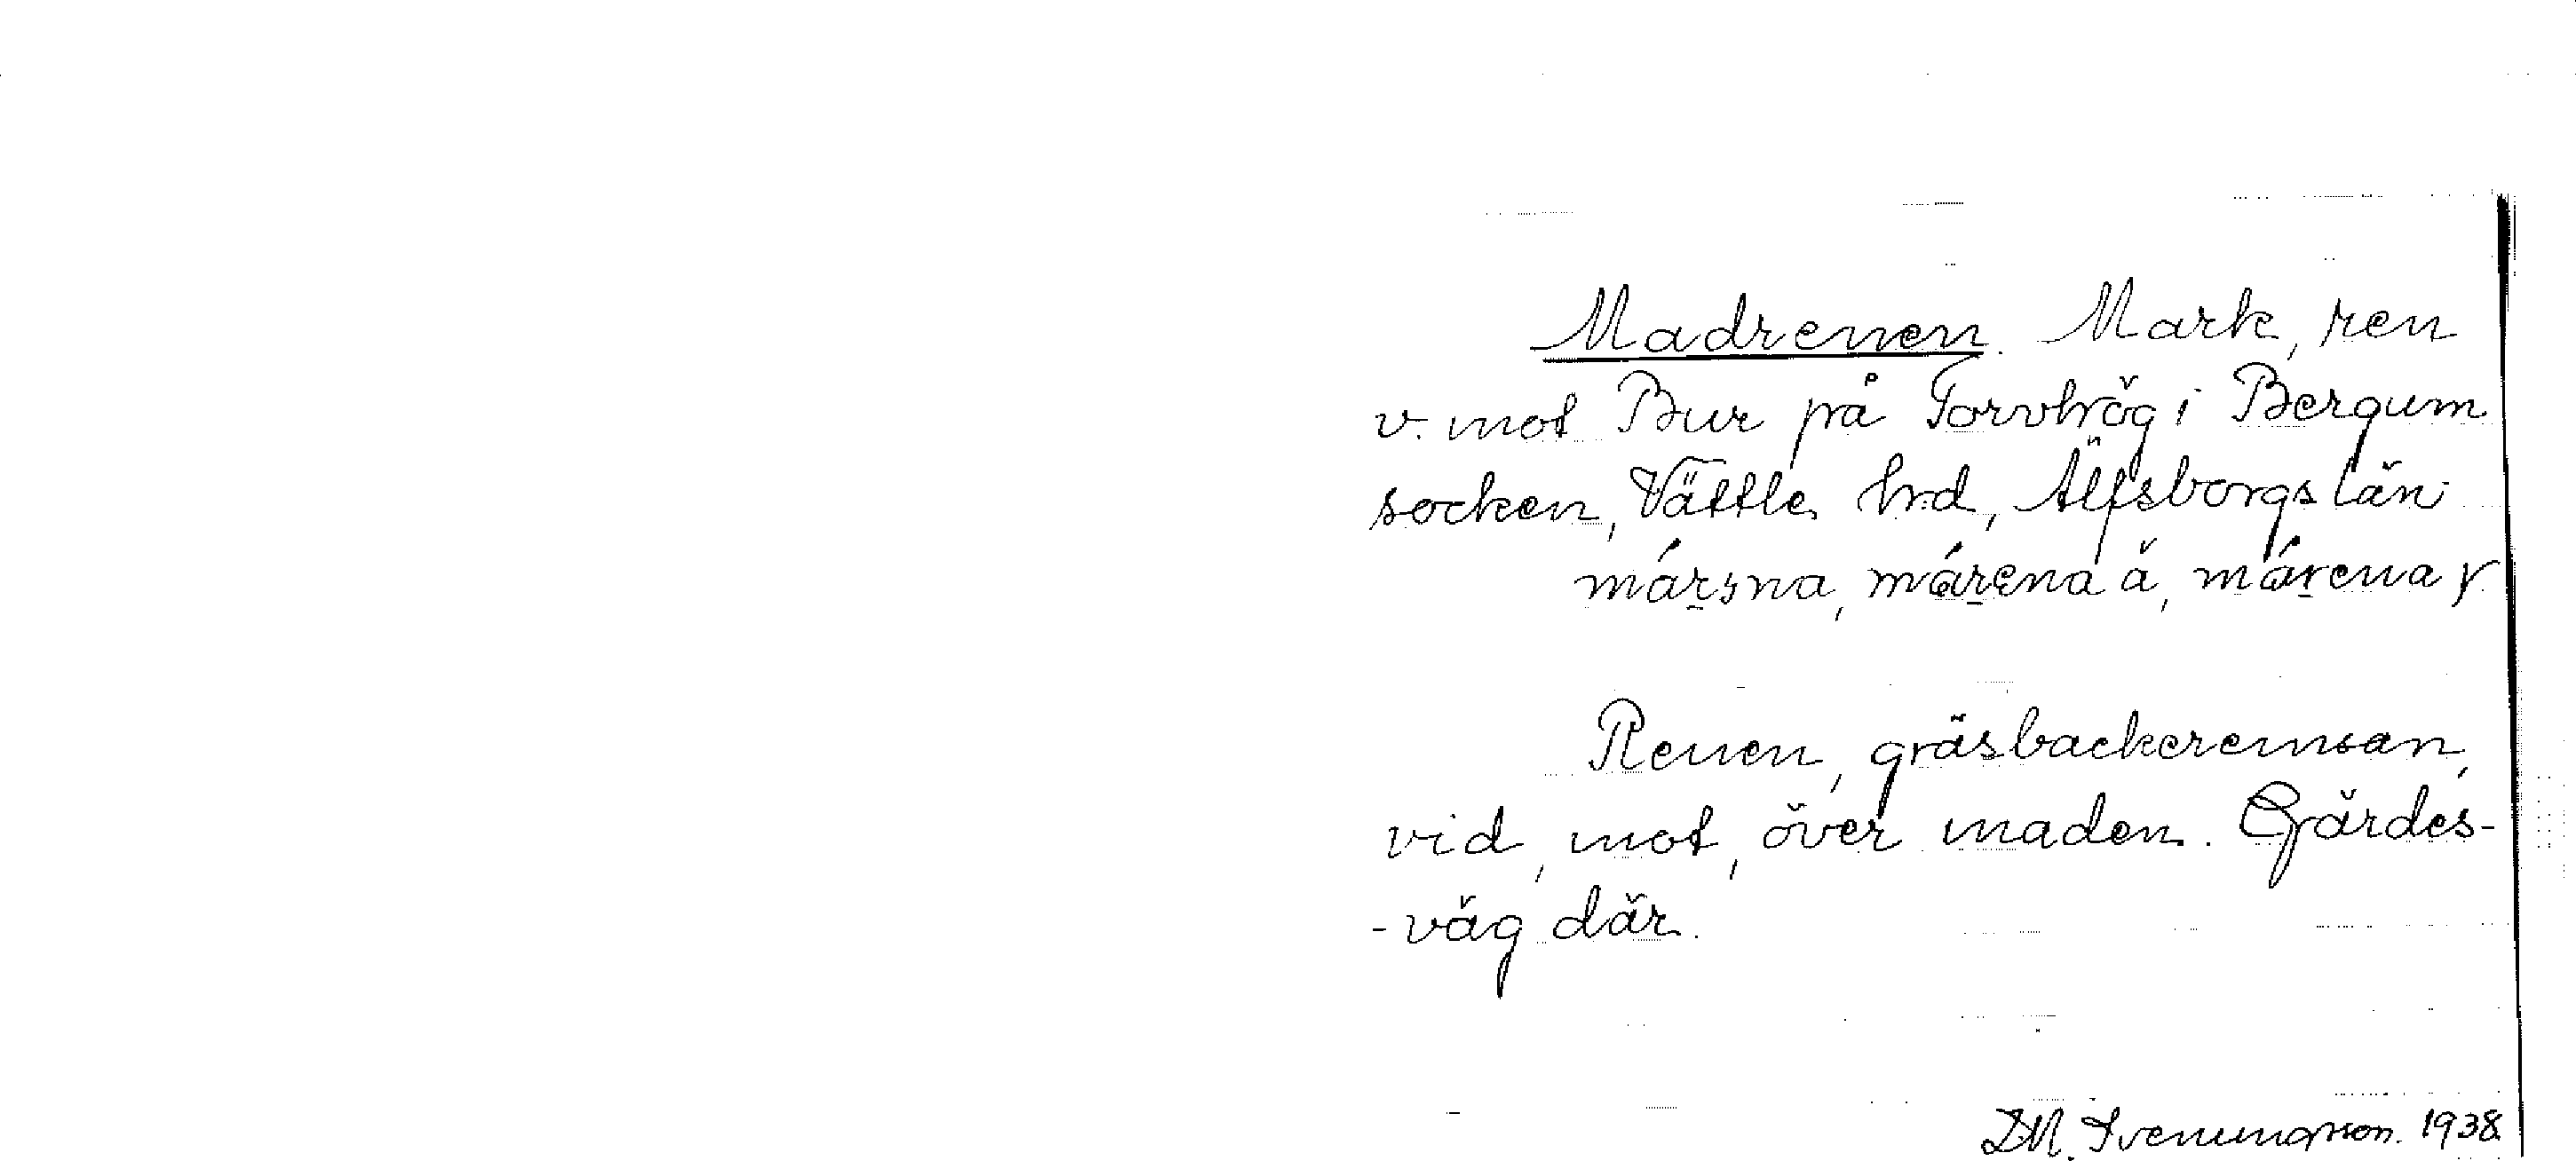 Madrenen. Mark, ren
v. mot Bur på Torvhög i Bergum
socken, Vättle hrd, Älfsborgs län
mársna, márena ä, márena
Renen, gräsbackeremsan,
vid, mot, över maden. Gärdes-
-väg där.
D.M. Svenungsson. 1938